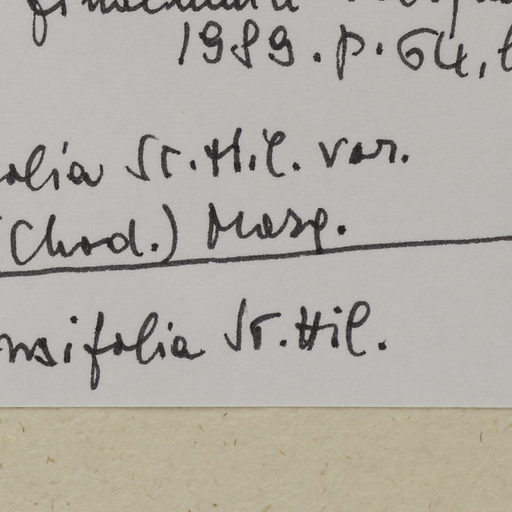 1989. p. 64,
olia St. Hil. var.
(Chod.) Marq.
nsifolia St. Hil.